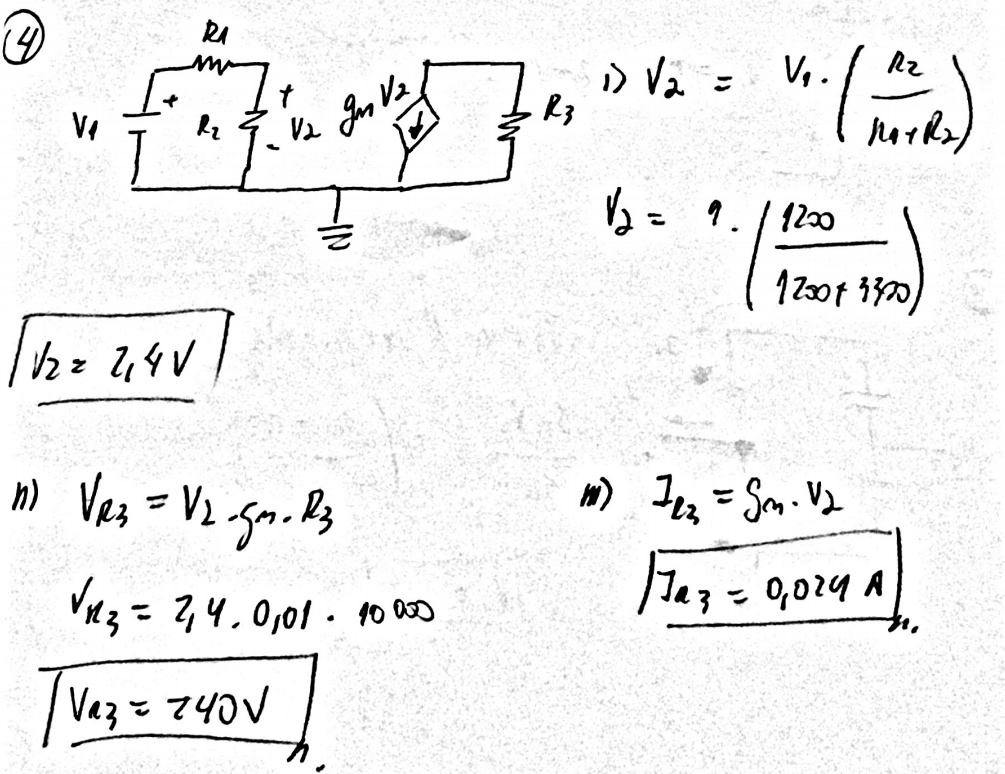 4
R1
V1
+
R2
+
V2
-
gm V2
R3
i) V2 = V1 . ( R2 / R1 + R2 )
V2 = 9 . ( 1200 / 1200 + 3300 )
V2 = 2,4 V
ii) VR3 = V2 . gm . R3
VR3 = 2,4 . 0,01 . 10 000
VR3 = 240 V
iii) IR3 = gm . V2
IR3 = 0,024 A